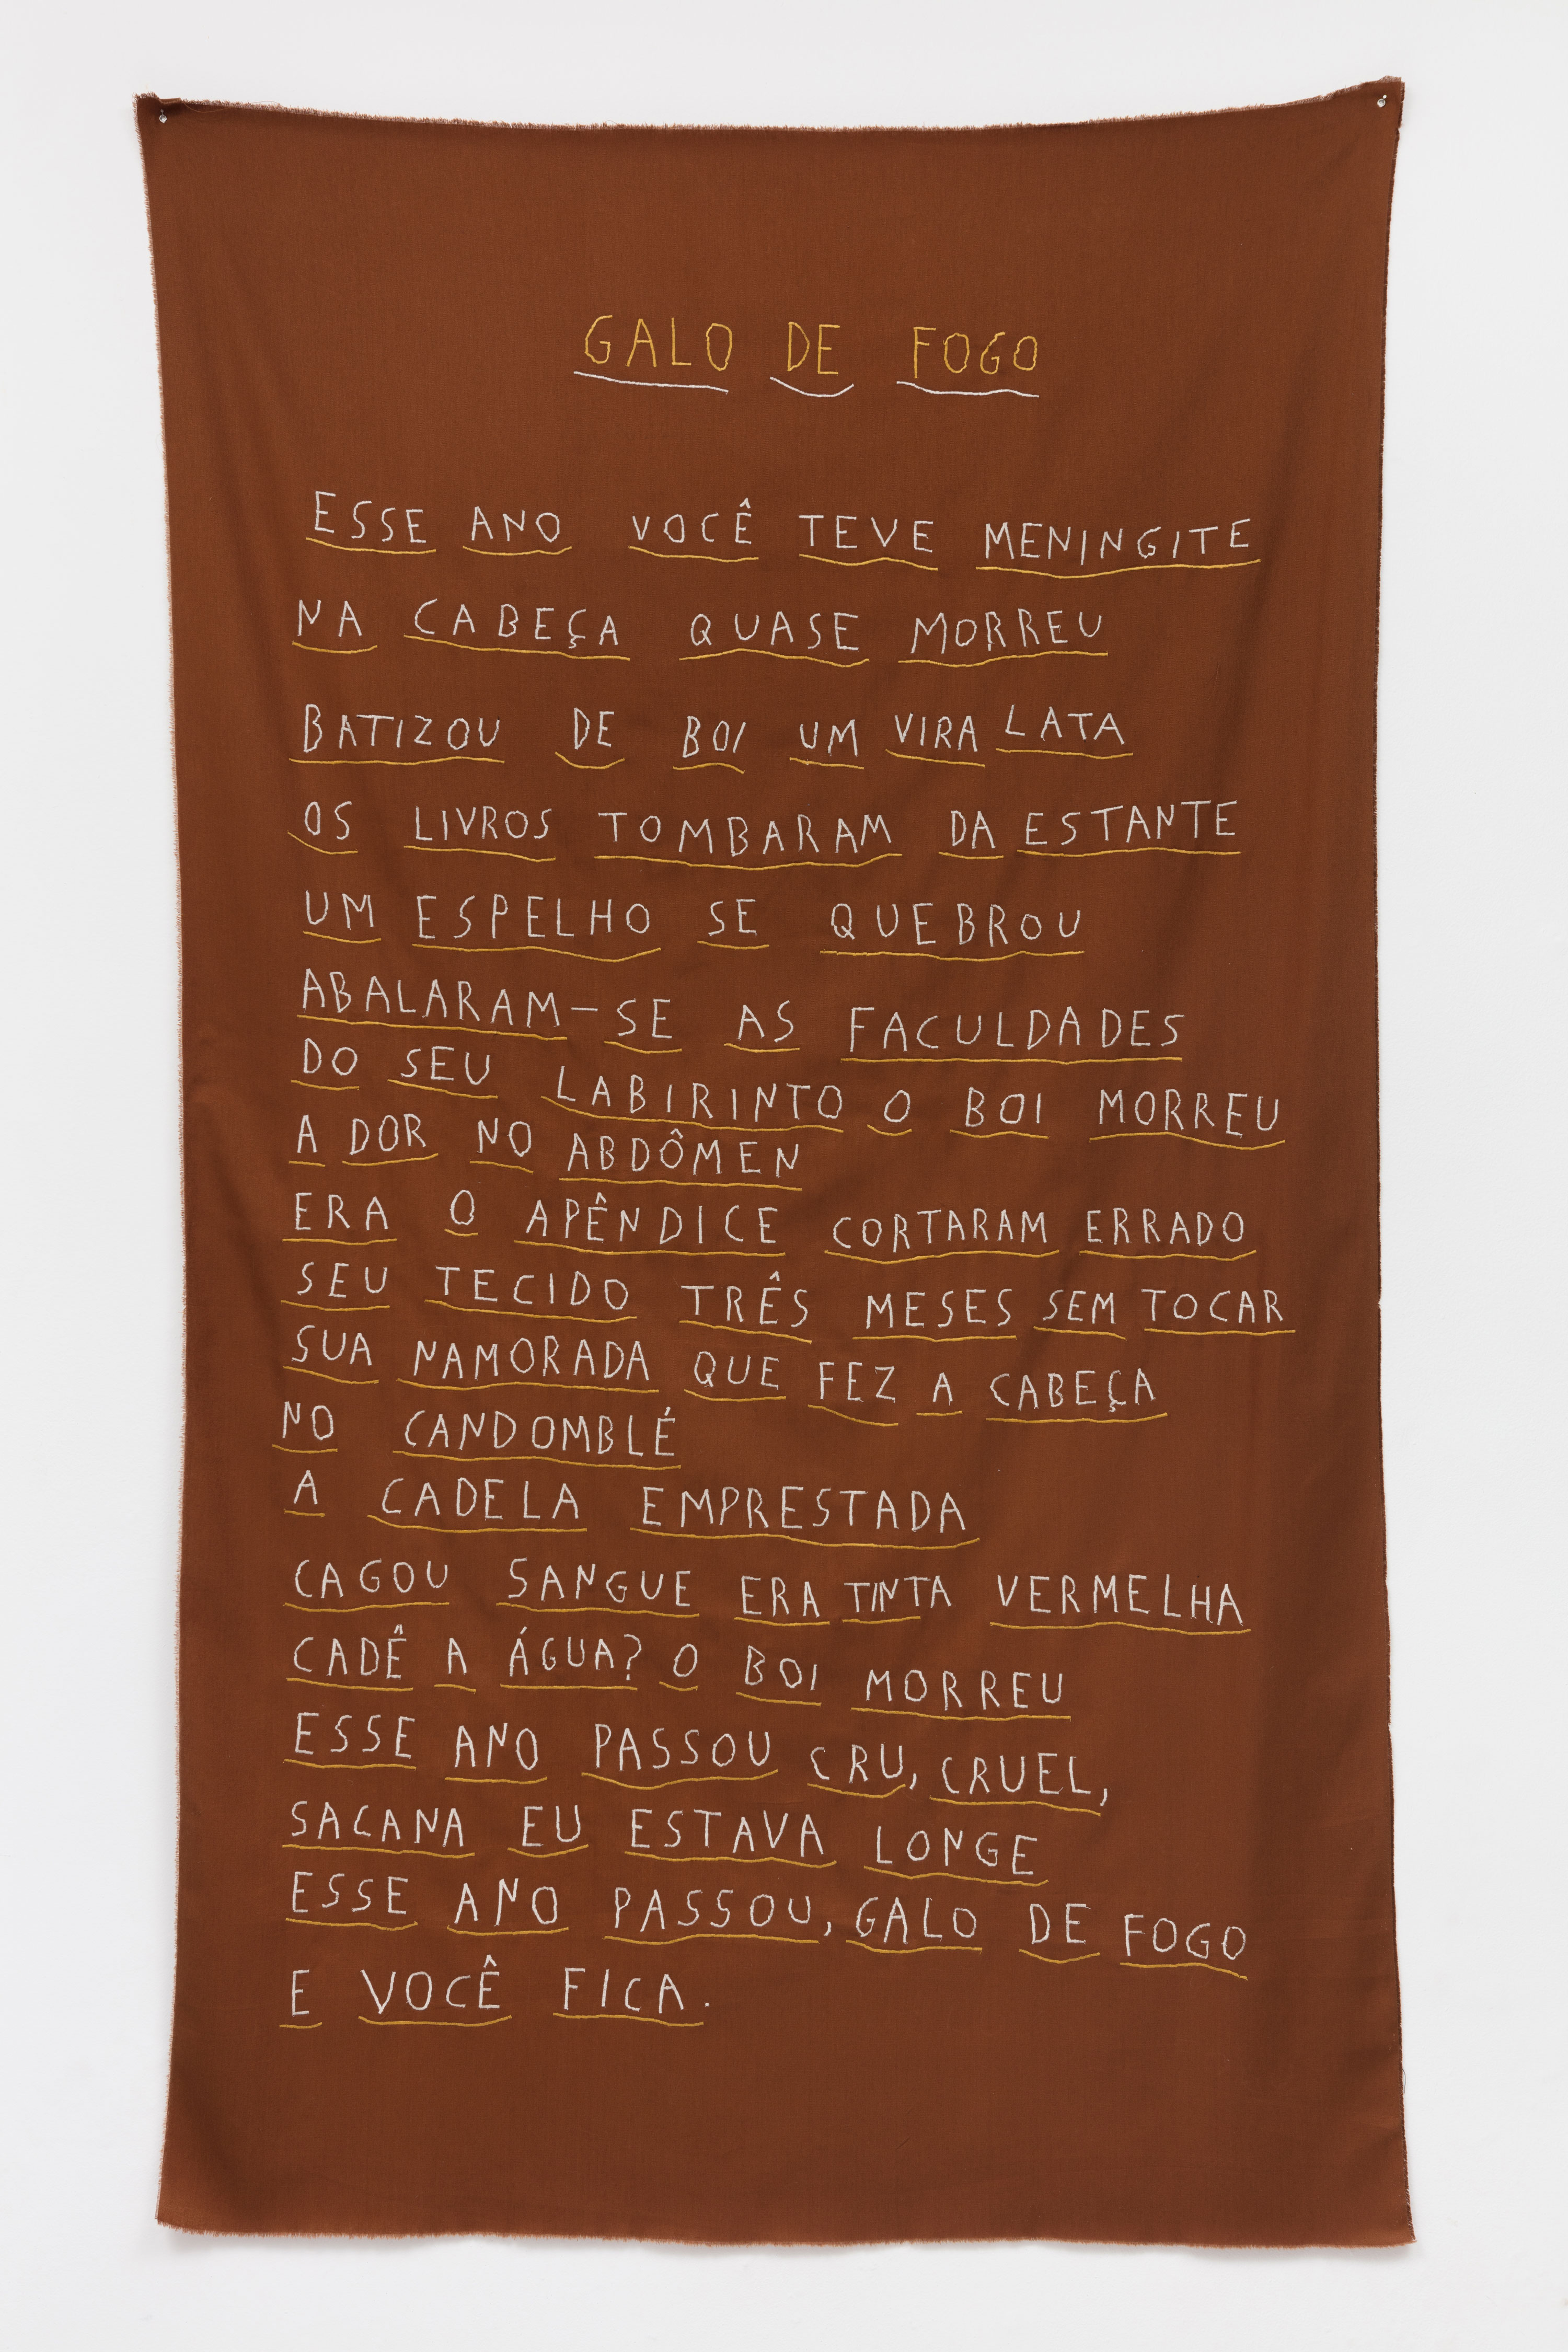 GALO DE FOGO
ESSE ANO VOCÊ TEVE MENINGITE
NA CABEÇA QUASE MORREU
BATIZOU DE BOI UM VIRA LATA
OS LIVROS TOMBARAM DA ESTANTE
UM ESPELHO SE QUEBROU
ABALARAM-SE AS FACULDADES
DO SEU LABIRINTO O BOI MORREU
A DOR NO ABDÔMEN
ERA O APÊNDICE CORTARAM ERRADO
SEU TECIDO TRÊS MESES SEM TOCAR
SUA NAMORADA QUE FEZ A CABEÇA
NO CANDOMBLÉ
A CADELA EMPRESTADA
CAGOU SANGUE ERA TINTA VERMELHA
CADÊ A ÁGUA? O BOI MORREU
ESSE ANO PASSOU CRU, CRUEL,
SACANA EU ESTAVA LONGE
ESSE ANO PASSOU, GALO DE FOGO
E VOCÊ FICA.